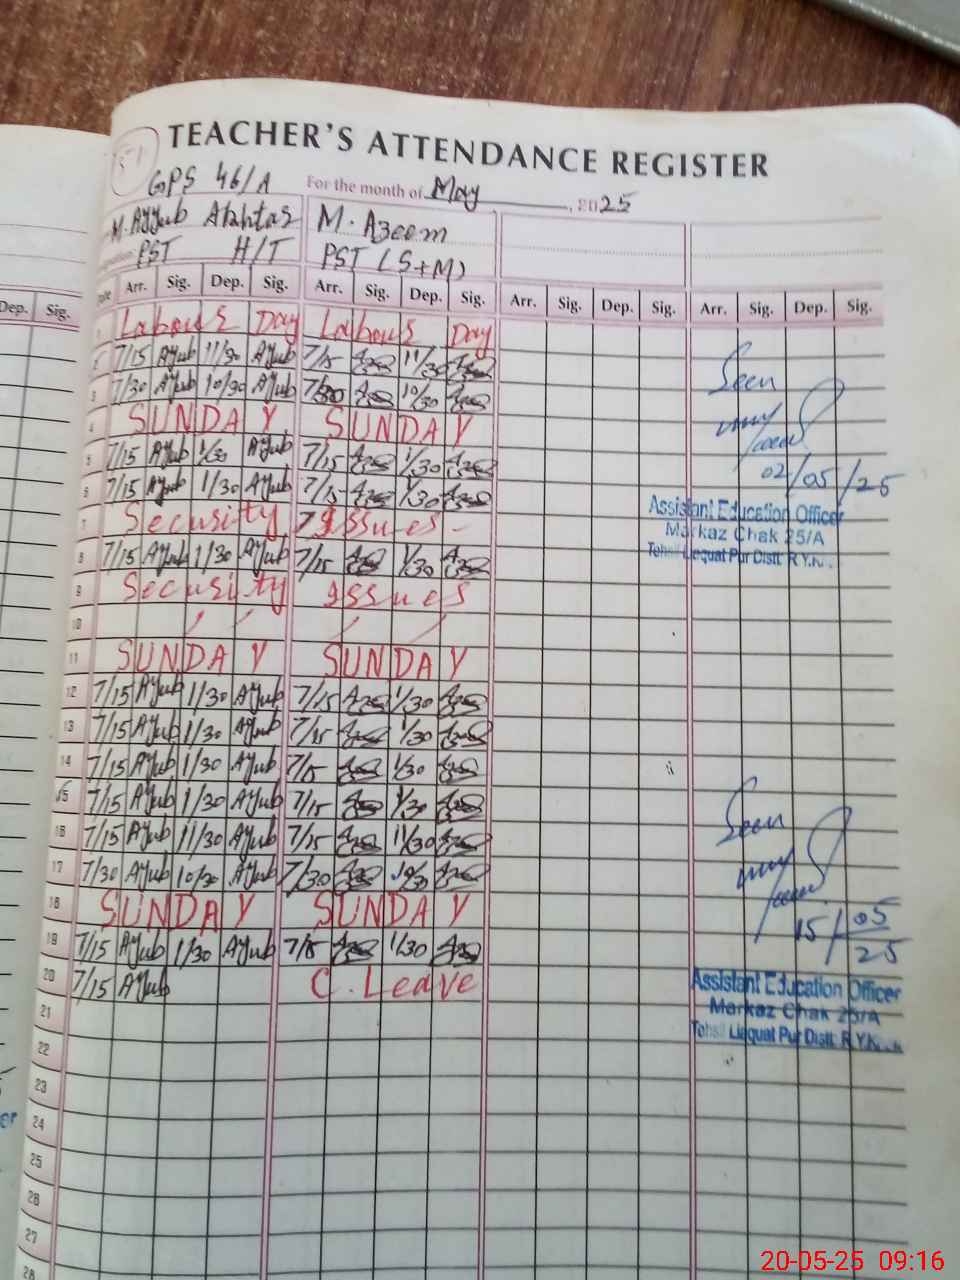 TEACHER'S ATTENDANCE REGISTER
GPS 46/A For the month of May, 2025
M. Ayyub Akhtar M. Azeem
PST H/T PST (S+M)
Dep. Sig. Date Arr. Sig. Dep. Sig. Arr. Sig. Dep. Sig. Arr. Sig. Dep. Sig. Arr. Sig. Dep. Sig.
1 Labour Day Labour Day
2 7/15 Ayub 11/30 Ayub 7/15 11/30
Seen
3 7/30 Ayub 10/30 Ayub 7/30 10/30
4 SUNDAY SUNDAY
5 7/15 Ayub 1/30 Ayub 7/15 1/30
02/05/25
6 7/15 Ayub 1/30 Ayub 7/15 1/30
Assistant Education Officer
7 Security Issues
Markaz Chak 25/A
8 7/15 Ayub 1/30 Ayub 7/15 1/30
Tehsil Liaquat Pur Distt. R.Y.K.
9 Security Issues
10
11 SUNDAY SUNDAY
12 7/15 Ayub 1/30 Ayub 7/15 1/30
13 7/15 Ayub 1/30 Ayub 7/15 1/30
14 7/15 Ayub 1/30 Ayub 7/15 1/30
15 7/15 Ayub 1/30 Ayub 7/15 1/30
Seen
16 7/15 Ayub 11/30 Ayub 7/15 11/30
17 7/30 Ayub 10/30 Ayub 7/30 10/30
18 SUNDAY SUNDAY
15/05/25
19 7/15 Ayub 1/30 Ayub 7/15 1/30
20 7/15 Ayub C. Leave
Assistant Education Officer
21
Markaz Chak 25/A
Tehsil Liaquat Pur Distt. R.Y.K.
22
23
24
25
26
27
28
20-05-25 09:16